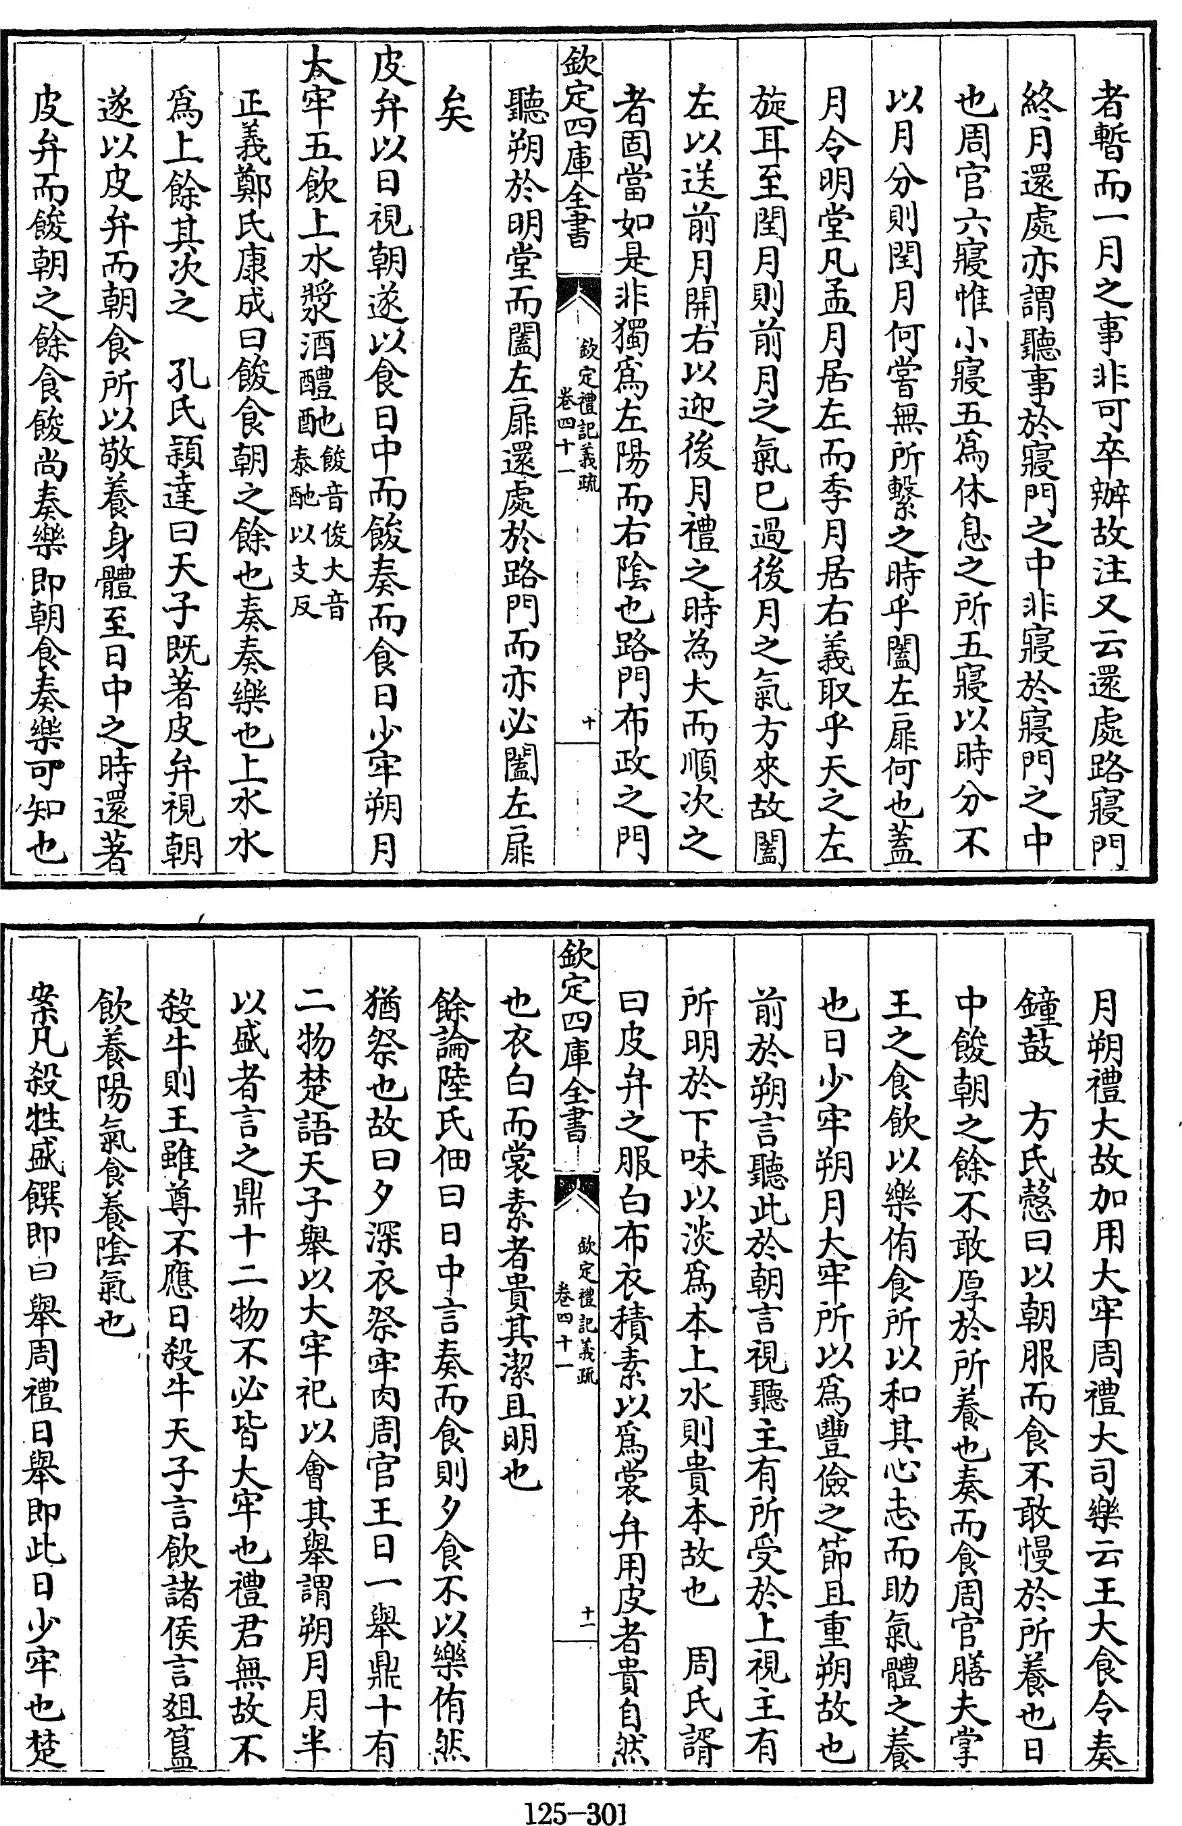 者暫而一月之事非可卒辦故注又云還處路寢門
終月還處亦謂聽事於寢門之中非寢於寢門之中
也周官六寢惟小寢五為休息之所五寢以時分不
以月分則閏月何嘗無所繫之時乎闔左扉何也蓋
月令明堂凡孟月居左而季月居右義取乎天之左
旋耳至閏月則前月之氣已過後月之氣方來故闔
左以送前月開右以迎後月禮之時為大而順次之
者固當如是非獨為左陽而右陰也路門布政之門
欽定四庫全書
欽定禮記義疏
卷四十一
十
聽朔於明堂而闔左扉還處於路門而亦必闔左扉
矣
皮弁以日視朝遂以食日中而餕奏而食日少牢朔月
太牢五飲上水漿酒醴酏餕音俊大音
泰酏以支反
正義鄭氏康成曰餕食朝之餘也奏奏樂也上水水
為上餘其次之　孔氏穎達曰天子既著皮弁視朝
遂以皮弁而朝食所以敬養身體至日中之時還著
皮弁而餕朝之餘食餕尚奏樂即朝食奏樂可知也
月朔禮大故加用大牢周禮大司樂云王大食令奏
鐘鼓　方氏慤曰以朝服而食不敢慢於所養也日
中餕朝之餘不敢厚於所養也奏而食周官膳夫掌
王之食飲以樂侑食所以和其心志而助氣體之養
也日少牢朔月大牢所以為豐儉之節且重朔故也
前於朔言聽此於朝言視聽主有所受於上視主有
所明於下味以淡為本上水則貴本故也　周氏諝
曰皮弁之服白布衣積素以為裳弁用皮者貴自然
欽定四庫全書
欽定禮記義疏
卷四十一
十一
也衣白而裳素者貴其潔且明也
餘論陸氏佃曰日中言奏而食則夕食不以樂侑然
猶祭也故曰夕深衣祭牢肉周官王日一舉鼎十有
二物楚語天子舉以大牢祀以會其舉謂朔月月半
以盛者言之鼎十二物不必皆大牢也禮君無故不
殺牛則王雖尊不應日殺牛天子言飲諸侯言俎簋
飲養陽氣食養陰氣也
案凡殺牲盛饌即曰舉周禮日舉即此日少牢也楚
125-301